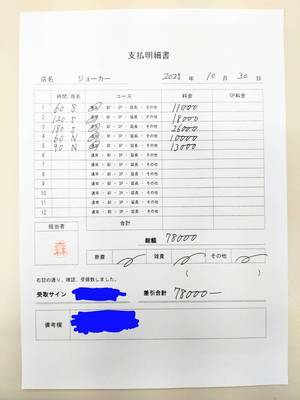 支払明細書
店名 ジョーカー 2023 年 10 月 30 日
時間 指名 コース 料金 OP料金
1 60 S 通常・即・3P・延長・その他 11000
2 120 S 通常・即・3P・延長・その他 18000
3 180 S 通常・即・3P・延長・その他 26000
4 60 N 通常・即・3P・延長・その他 10000
5 90 N 通常・即・3P・延長・その他 13000
6 通常・即・3P・延長・その他
7 通常・即・3P・延長・その他
8 通常・即・3P・延長・その他
9 通常・即・3P・延長・その他
10 通常・即・3P・延長・その他
11 通常・即・3P・延長・その他
12 通常・即・3P・延長・その他
合計
担当者
森
総額 78000
寮費 雑費 その他
( )
右記の通り、確認、受領致しました。
受取サイン 差引合計 78000-
備考欄